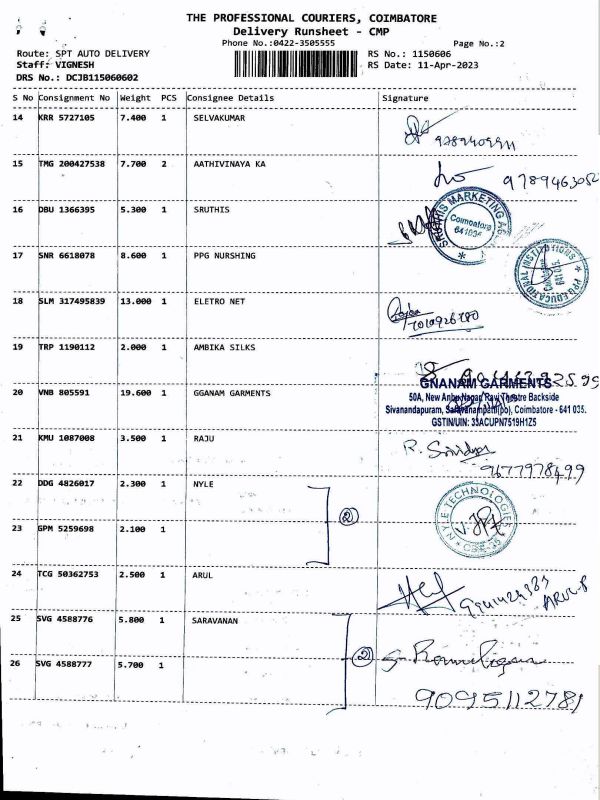 THE PROFESSIONAL COURIERS, COIMBATORE
Delivery Runsheet - CMP
Phone No.:0422-3505555 Page No.:2
Route: SPT AUTO DELIVERY RS No.: 1150606
Staff: VIGNESH RS Date: 11-Apr-2023
DRS No.: DCJB115060602
S No Consignment No Weight PCS Consignee Details Signature
14 KRR 5727105 7.400 1 SELVAKUMAR
15 TMG 200427538 7.700 2 AATHIVINAYA KA
16 DBU 1366395 5.300 1 SRUTHIS
SRUTHIS MARKETING
Coimbatore
641035
17 SNR 6618078 8.600 1 PPG NURSHING
PPG EDUCATIONAL INSTITUTIONS
18 SLM 317495839 13.000 1 ELETRO NET
19 TRP 1190112 2.000 1 AMBIKA SILKS
20 VNB 805591 19.600 1 GGANAM GARMENTS
GNANAM GARMENTS
50A, New Anbu Nagar, Ravi Theatre Backside
Sivanandapuram, Saravanampatti(po), Coimbatore - 641 035.
GSTIN/UIN: 33ACUPN7519H1Z5
21 KMU 1087008 3.500 1 RAJU
9677978499
22 DDG 4826017 2.300 1 NYLE
NYLE TECHNOLOGIES
CBE-35
2
23 GPM 5259698 2.100 1
24 TCG 50362753 2.500 1 ARUL
ARUL
25 SVG 4588776 5.800 1 SARAVANAN
2
26 SVG 4588777 5.700 1
9095112781